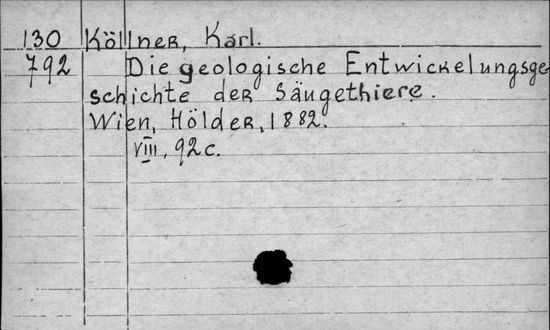 130 Köllner, Karl.
792 Die geologische Entwickelungsge
schichte der Säugethiere.
Wien, Hölder, 1882.
VIII, 92 c.